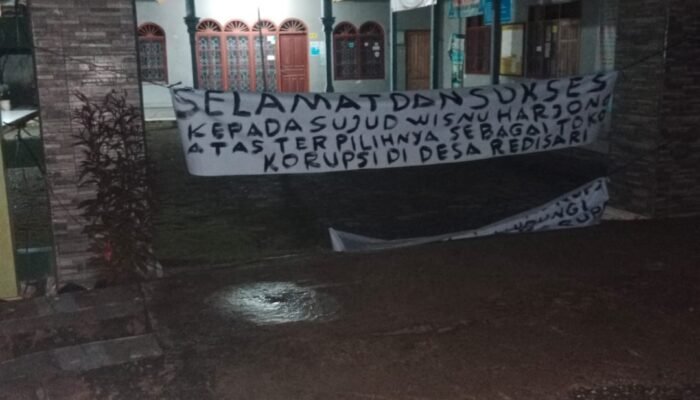 SELAMAT DAN SUKSES
KEPADA SUJUD WISNU HARJONO
ATAS TERPILIHNYA SEBAGAI TOKO
KORUPSI DI DESA REDISARI